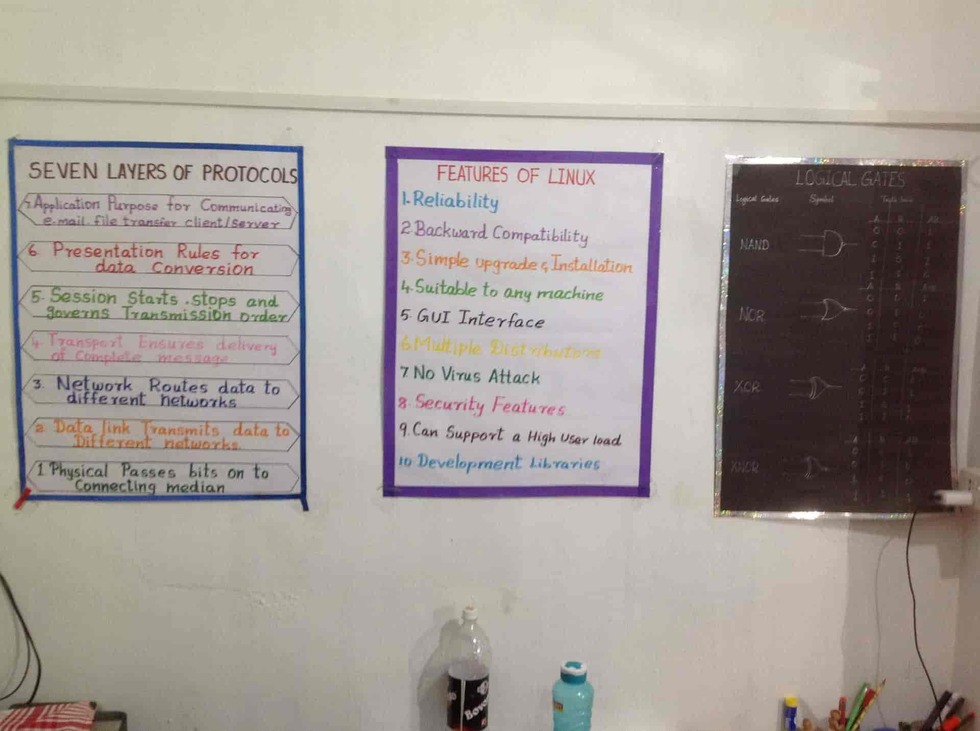 SEVEN LAYERS OF PROTOCOLS
7. Application Purpose for Communicating
e-mail file transfer client/server
6. Presentation Rules for
data Conversion
5. Session Starts, stops and
governs Transmission order
4. Transport Ensures delivery
of Complete message
3. Network Routes data to
different networks
2. Data link Transmits data to
Different networks
1 Physical Passes bits on to
Connecting median
FEATURES OF LINUX
1. Reliability
2. Backward Compatibility
3. Simple upgrade & Installation
4. Suitable to any machine
5. GUI Interface
6. Multiple Distributors
7 No Virus Attack
8. Security Features
9. Can Support a High User load
10 Development Libraries
LOGICAL GATES
Logical Gates Symbol
NAND
NOR
XOR
XNOR